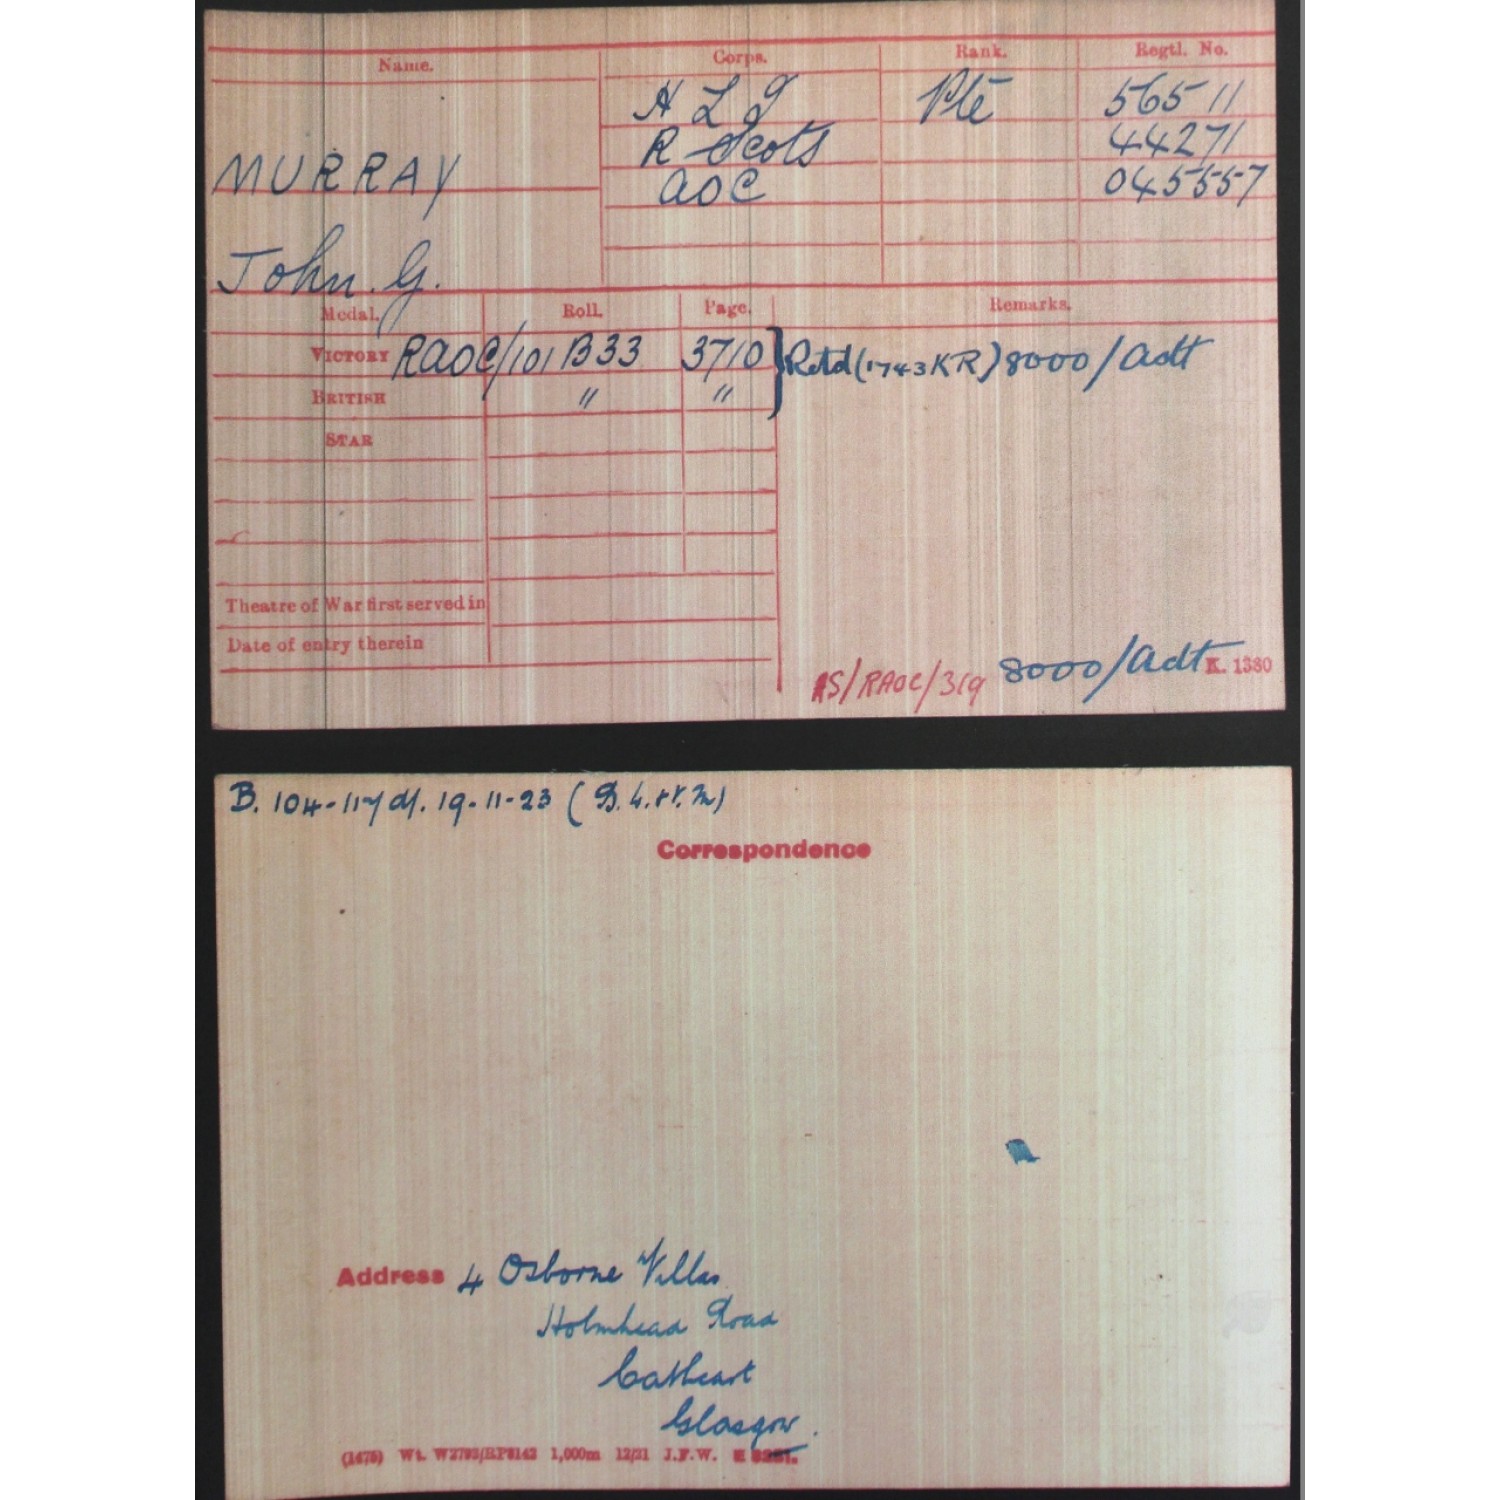 Name. Corps. Rank. Regtl. No.
H L I Pte 56511
R Scots 44271
MURRAY AOC 045557
John. G.
Medal. Roll. Page. Remarks.
VICTORY RAOC/101 B33 3710 } Retd (1743KR) 8000/Adt
BRITISH " "
STAR
Theatre of War first served in
Date of entry therein
IS/RAOC/319 8000/Adt K. 1380
B. 104-117 d/. 19-11-23 (B. &.
Correspondence
Address 4 Osborne Villas
Holmhead Road
Cathcart
Glasgow.
(1478) Wt. W2793/RP8142 1,000m 12/21 J.F.W. E